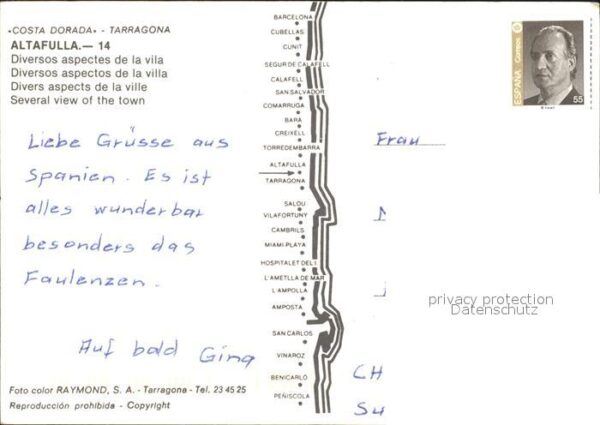 «COSTA DORADA» - TARRAGONA
ALTAFULLA.— 14
Diversos aspectes de la vila
Diversos aspectos de la villa
Divers aspects de la ville
Several view of the town
Liebe Grüsse aus
Spanien. Es ist
alles wunderbar
besonders das
Faulenzen.
Auf bald Gina
Foto color RAYMOND, S. A. - Tarragona - Tel. 23 45 25
Reproducción prohibida - Copyright
BARCELONA
CUBELLAS
CUNIT
SEGUR DE CALAFELL
CALAFELL
SAN SALVADOR
COMARRUGA
BARÁ
CREIXELL
TORREDEMBARRA
ALTAFULLA
TARRAGONA
SALOU
VILAFORTUNY
CAMBRILS
MIAMI-PLAYA
HOSPITALET DEL I.
L'AMETLLA DE MAR
L'AMPOLLA
AMPOSTA
SAN CARLOS
VINAROZ
BENICARLÓ
PEÑISCOLA
ESPAÑA
Correos
55
Frau
privacy protection
Datenschutz
CH
Su